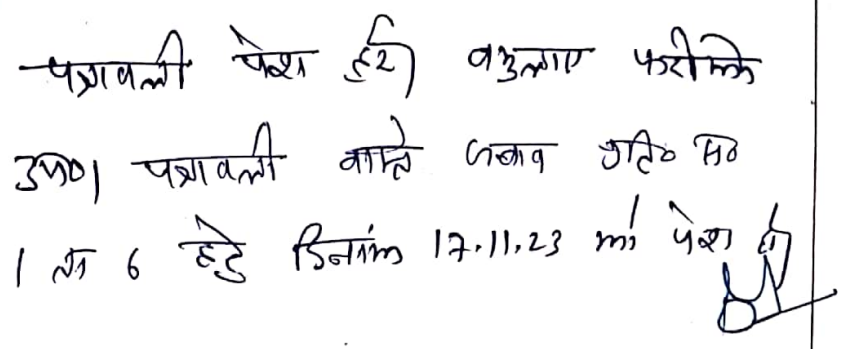 पत्रावली पेश हुई वकुलाए फरीकेन
उप०। पत्रावली वास्ते जबाव प्रति० सं०
1 ता 6 हेतु दिनांक 17.11.23 को पेश हो